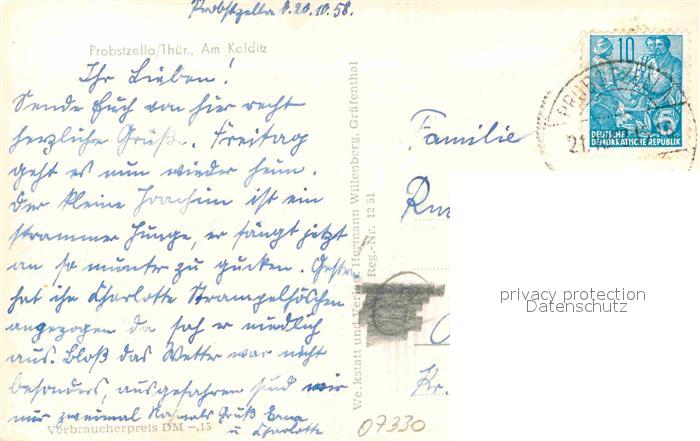 Probstzella d. 20.10.58.
Probstzella/Thür., Am Kolditz
Ihr Lieben!
Sende Euch von hier recht
herzliche Grüße. Freitag
geht es nun wieder heim.
Der kleine Joachim ist ein
strammer Junge, er fängt jetzt
an so munter zu gucken. Gestern
hat ihn Charlotte Strampelhöschen
angezogen da sah er niedlich
aus. Bloß das Wetter war nicht
besonders, ausgefahren sind wir
nur zweimal Nochmals Gruß
u Charlotte
Verbraucherpreis DM -,15
Werkstatt und Verlag Hermann Willenberg, Gräfenthal
Reg.-Nr. 12 51
Familie
Kr.
07330
10
5
DEUTSCHE
DEMOKRATISCHE REPUBLIK
21.
privacy protection
Datenschutz